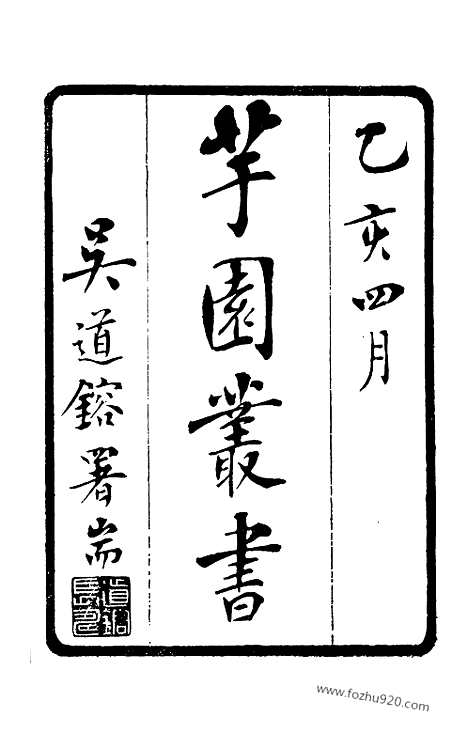 乙亥四月
芋園叢書
吳道鎔署耑
www.fozhu920.com